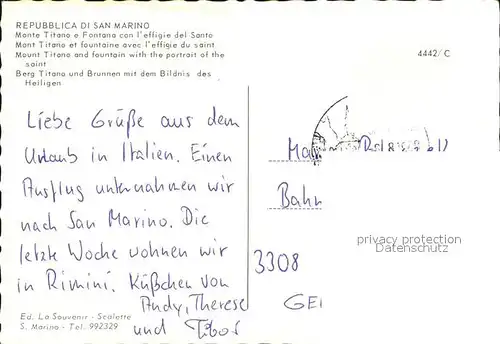 REPUBBLICA DI SAN MARINO
Monte Titano e Fontana con l'effigie del Santo
Mont Titano et fountaine avec l'effigie du saint
Mount Titano and fountain with the portrait of the
saint
Berg Titano und Brunnen mit dem Bildnis des
Heiligen
4442/C
Liebe Grüße aus dem
Urlaub in Italien. Einen
Ausflug unternahmen wir
nach San Marino. Die
letzte Woche wohnen wir
in Rimini. Küßchen von
Andy, Therese
und Tibor
Bahn
privacy protection
Datenschutz
3308
GEI
Ed. La Souvenir - Scalette
S. Marino - Tel. 992329